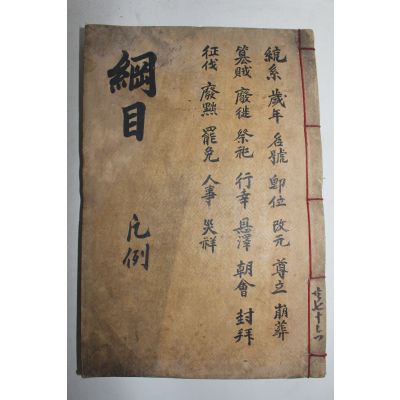 統系 歲年 名號 卽位 改元 尊立 崩葬
簒賊 廢徙 祭祀 行幸 恩澤 朝會 封拜
征伐 廢黜 罷免 人事 災祥
綱目 凡例